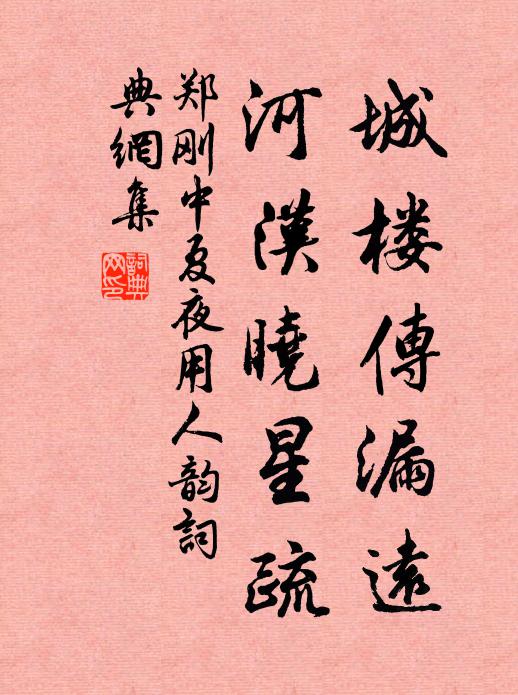 城楼傳漏遠
河漢曉星疏
郑刚中夏夜用人韵詞
典網集
詞典網印